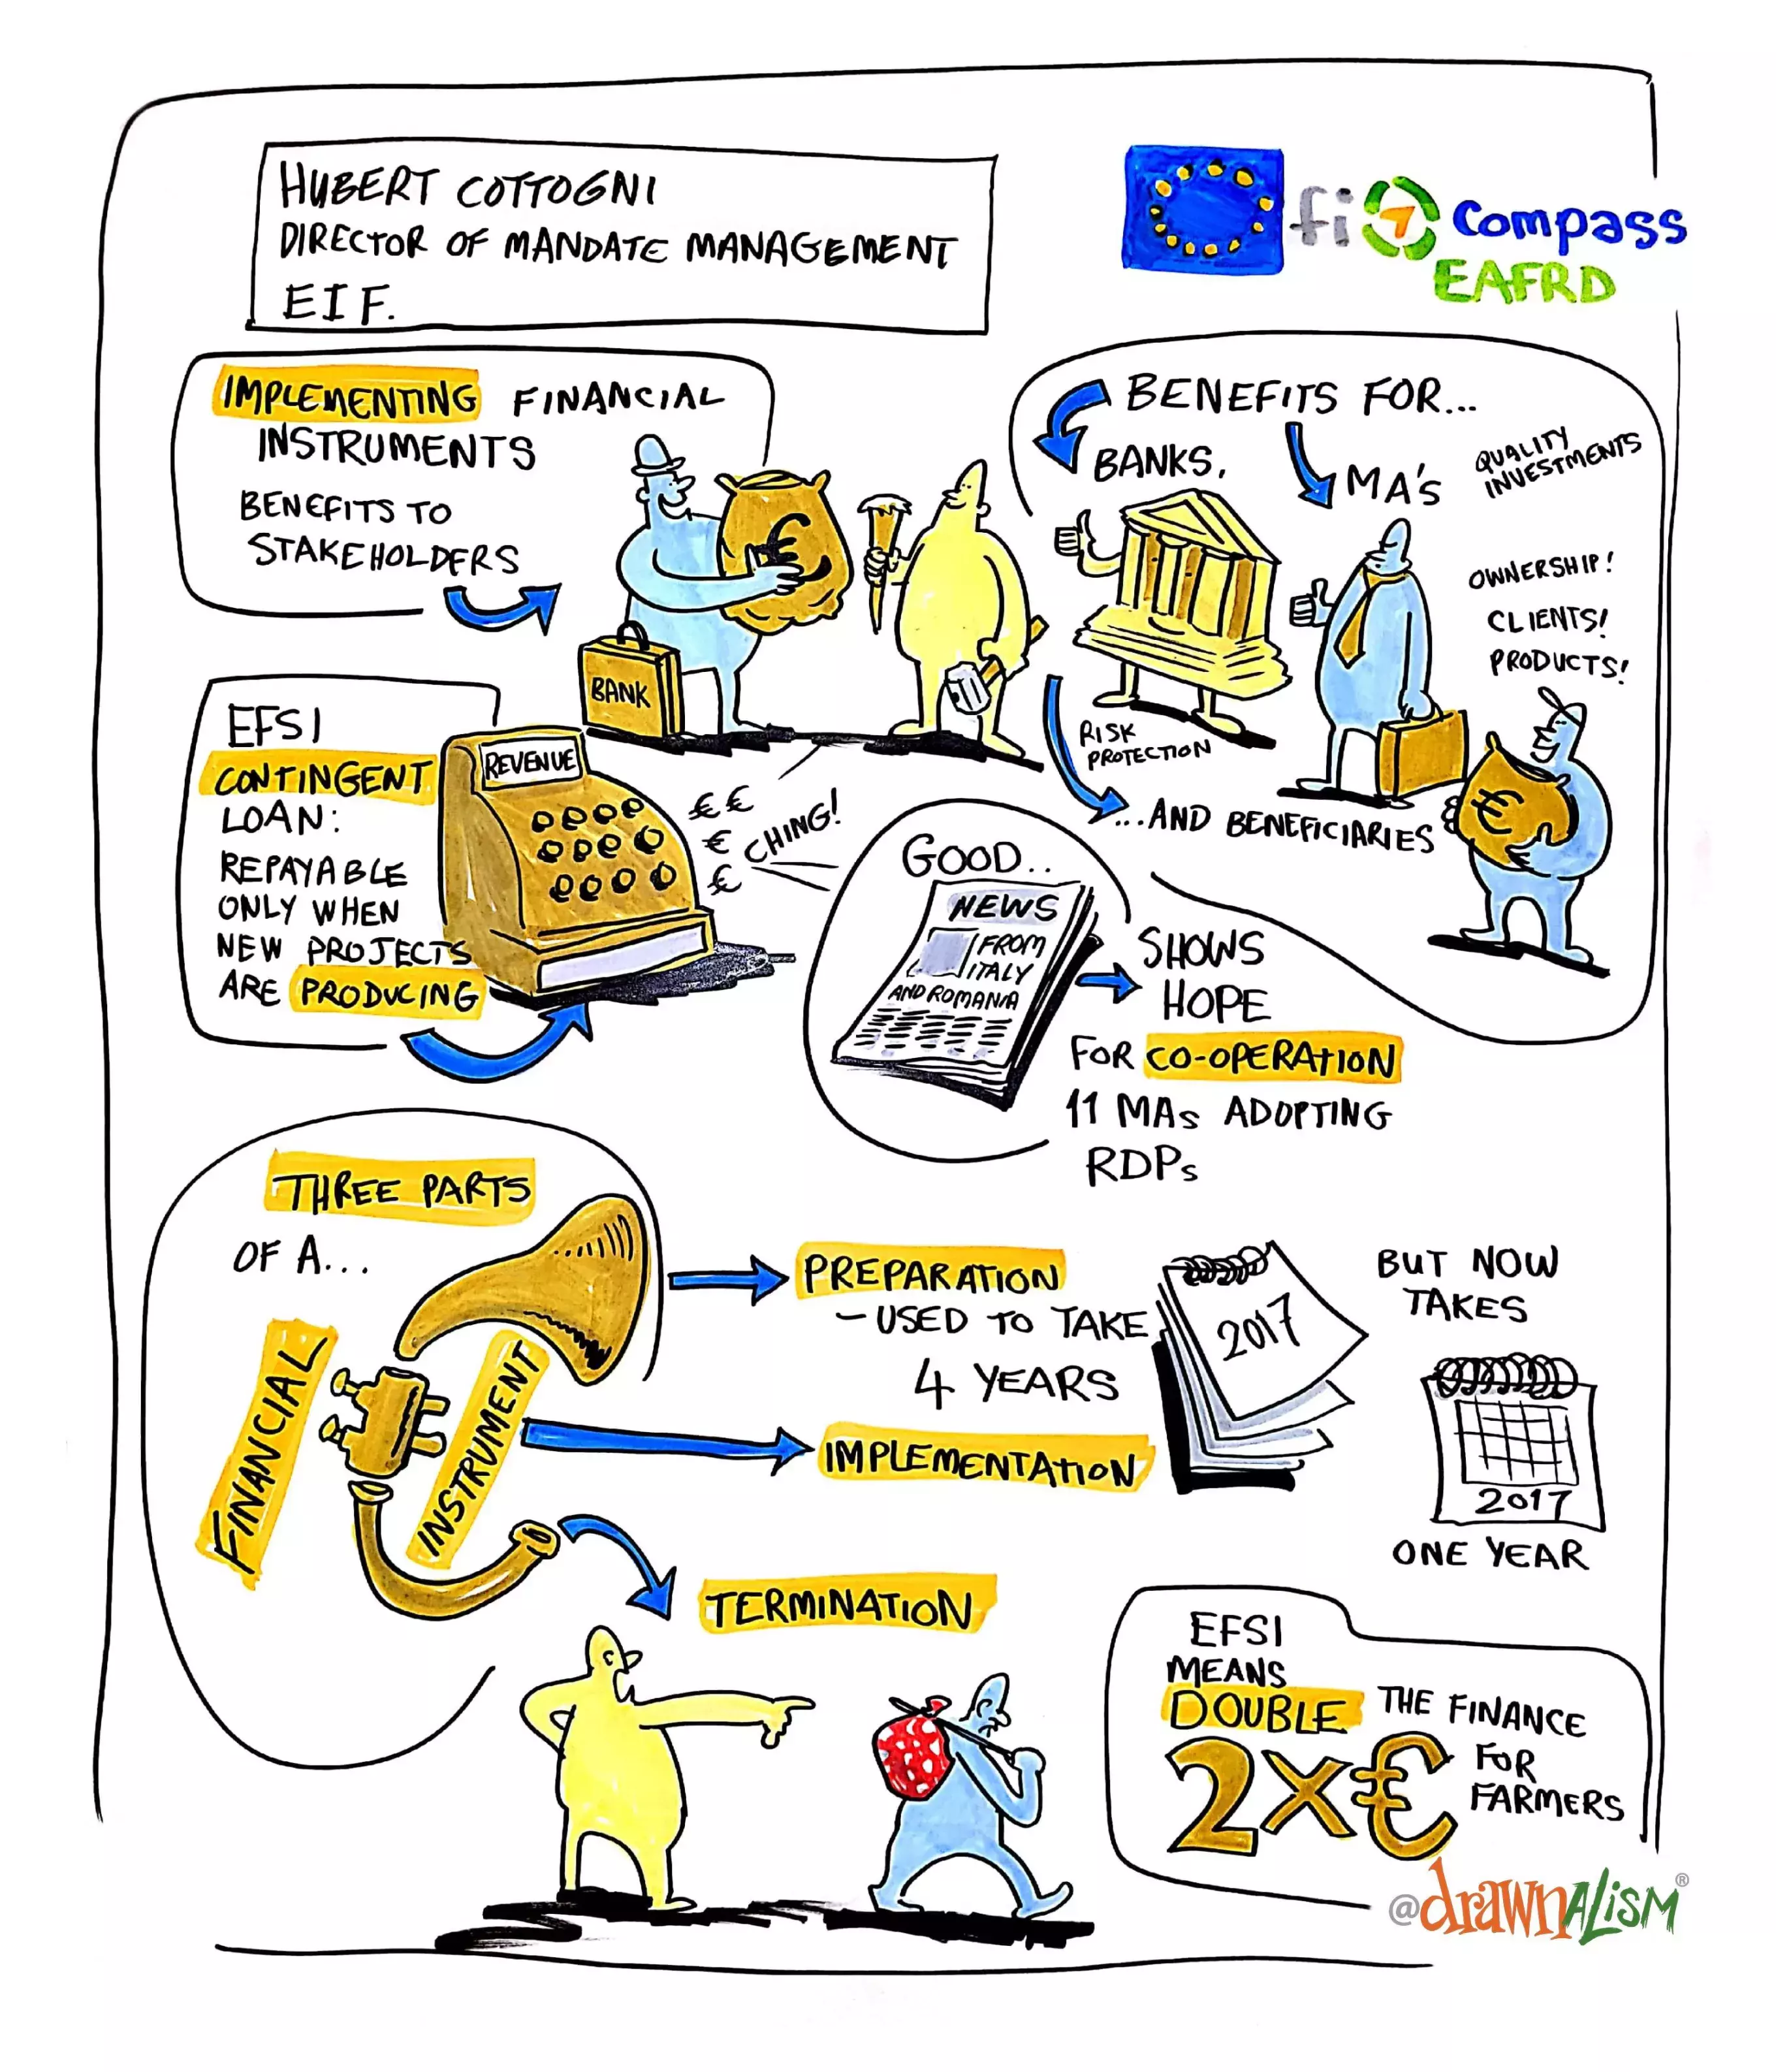 HUBERT COTTOGNI
DIRECTOR OF MANDATE MANAGEMENT
EIF.
fi compass
EAFRD
IMPLEMENTING FINANCIAL
INSTRUMENTS
BENEFITS TO
STAKEHOLDERS
BANK
€
BENEFITS FOR...
BANKS,
MA'S
QUALITY
INVESTMENTS
OWNERSHIP!
CLIENTS!
PRODUCTS!
RISK
PROTECTION
...AND BENEFICIARIES
€
EFSI
CONTINGENT
LOAN:
REPAYABLE
ONLY WHEN
NEW PROJECTS
ARE PRODUCING
REVENUE
€€
€
€
CHING!
GOOD..
NEWS
FROM
ITALY
AND ROMANIA
SHOWS
HOPE
FOR CO-OPERATION
11 MAs ADOPTING
RDPs
THREE PARTS
OF A...
FINANCIAL
INSTRUMENT
PREPARATION
- USED TO TAKE
4 YEARS
2017
BUT NOW
TAKES
2017
ONE YEAR
IMPLEMENTATION
TERMINATION
EFSI
MEANS
DOUBLE THE FINANCE
FOR
FARMERS
2X€
@drawnALISM®